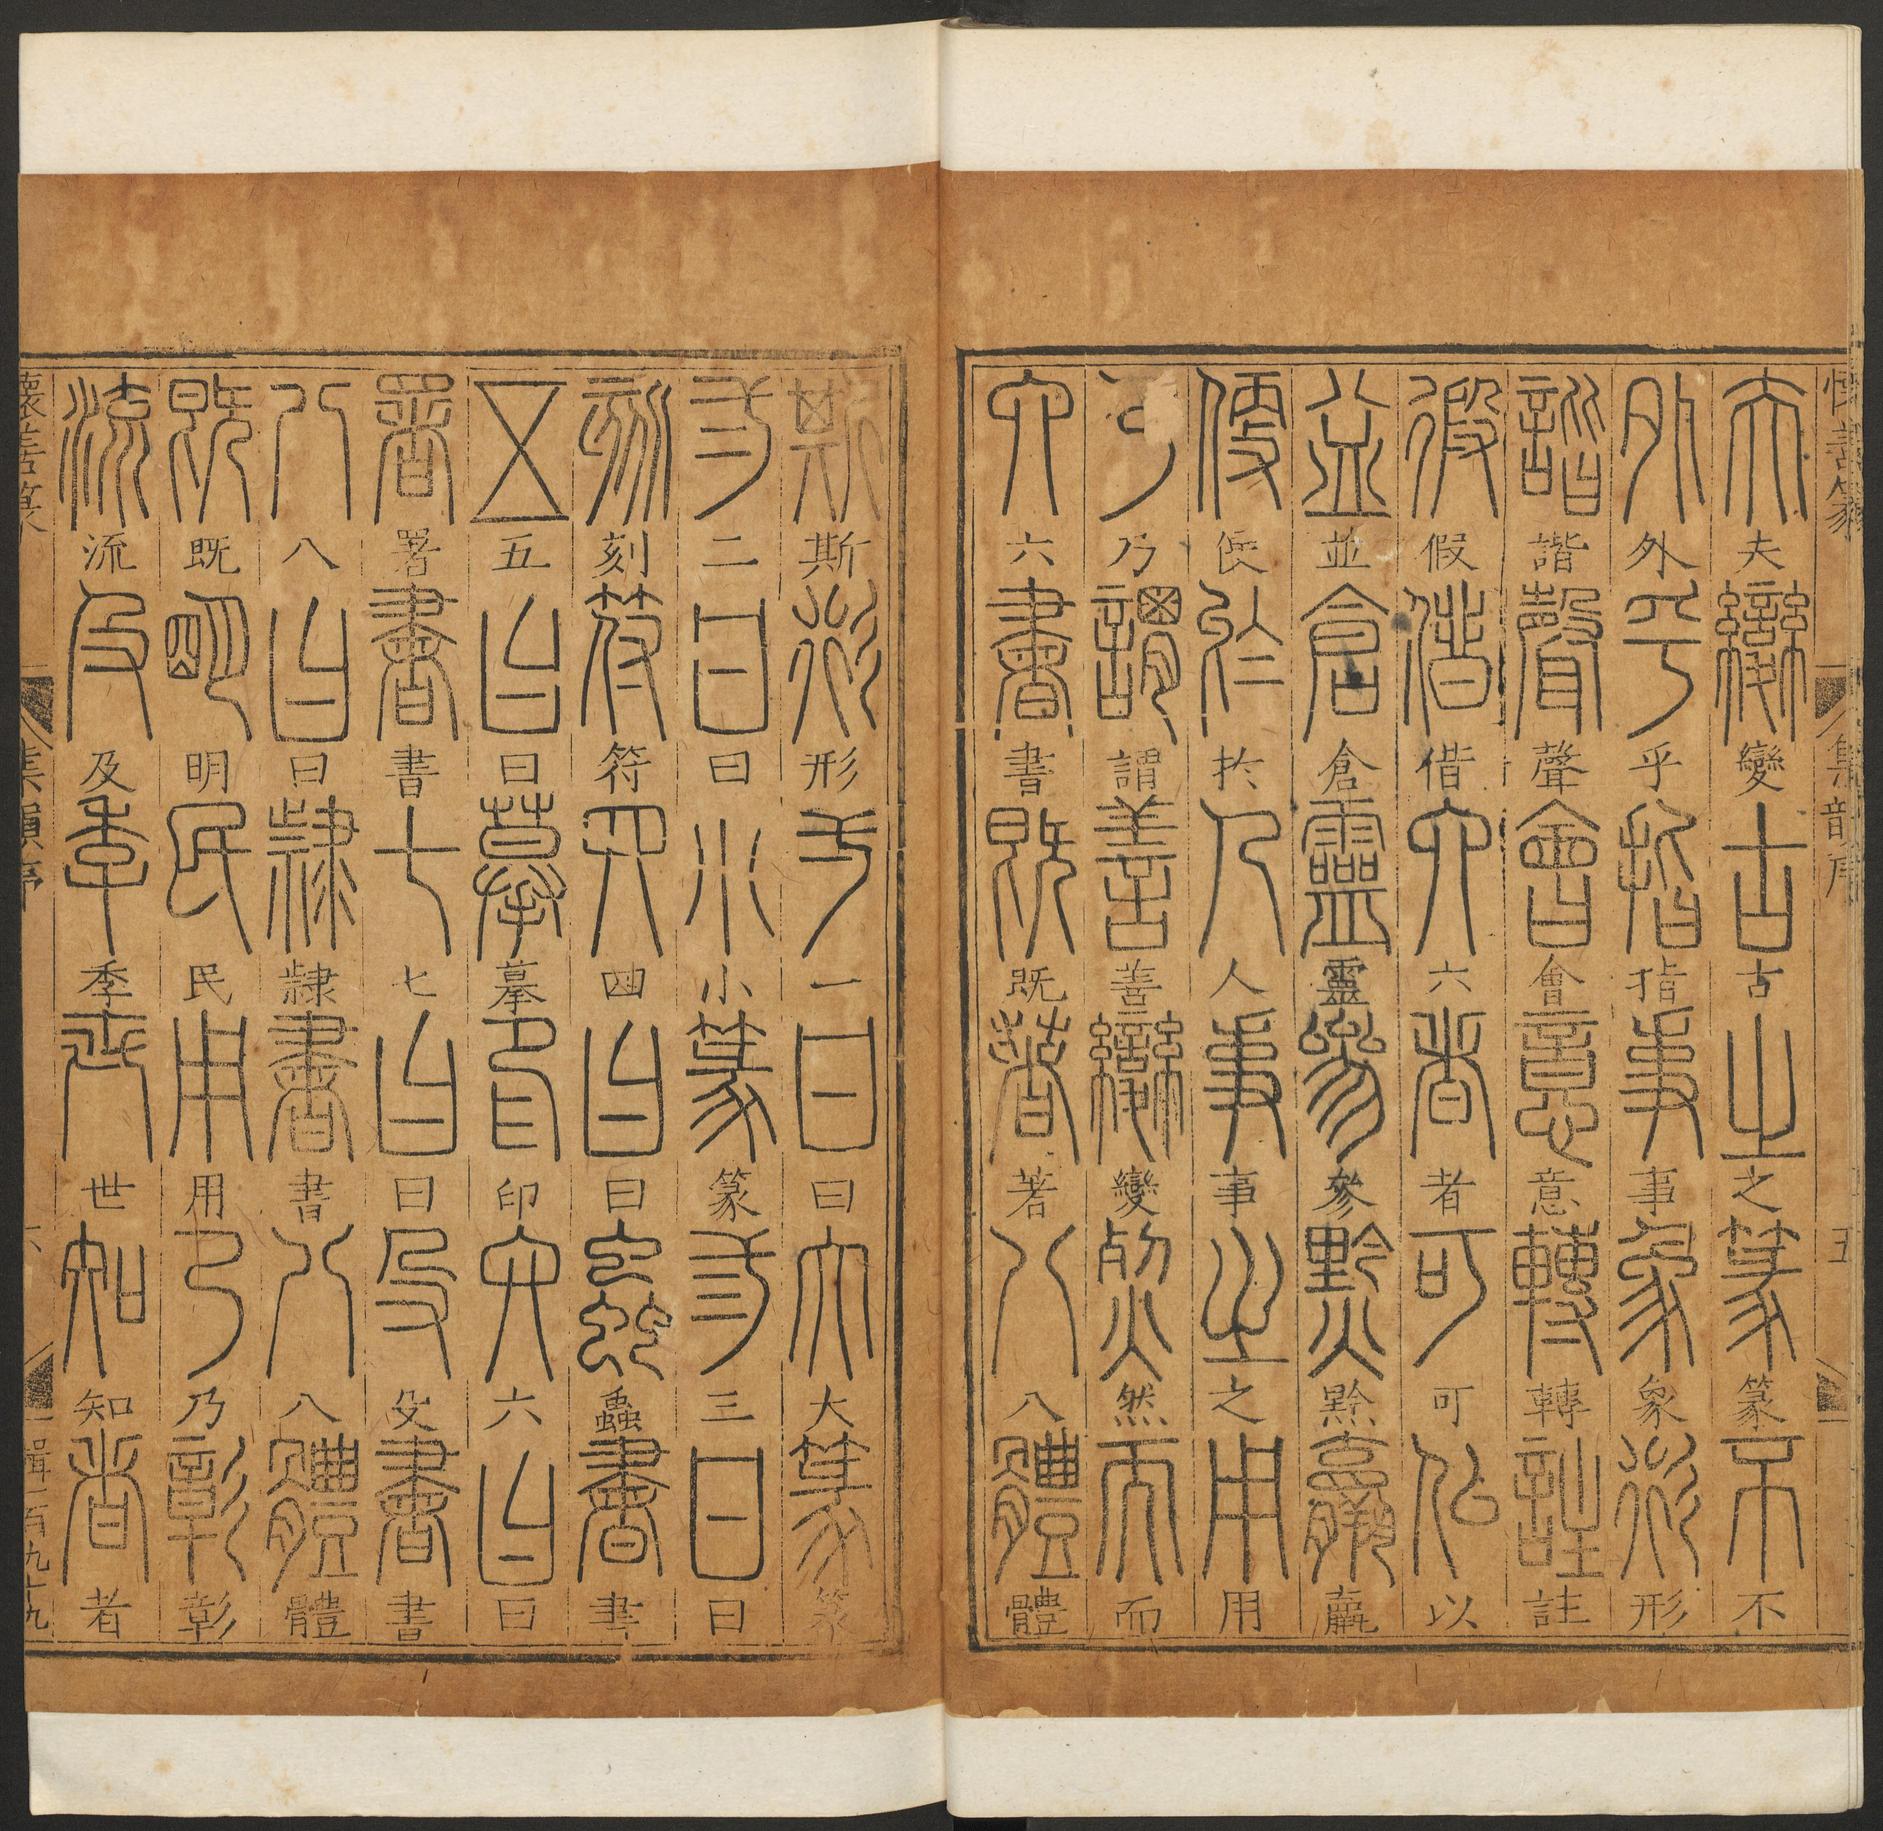 夫變古之篆不
外乎指事象形
諧聲會意轉註
假借六者可以
並倉靈參黔羸
侫於人事之用
乃謂善變然而
六書既著八體
斯形一曰大篆
二曰小篆三曰
刻符四曰蟲書
五曰摹印六曰
署書七曰殳書
八曰隸書八體
既明民用乃彰
流及季世知者
懷善篆 集韻序 六